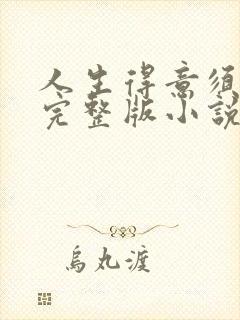 人生得意須
完整版小説
烏丸渡